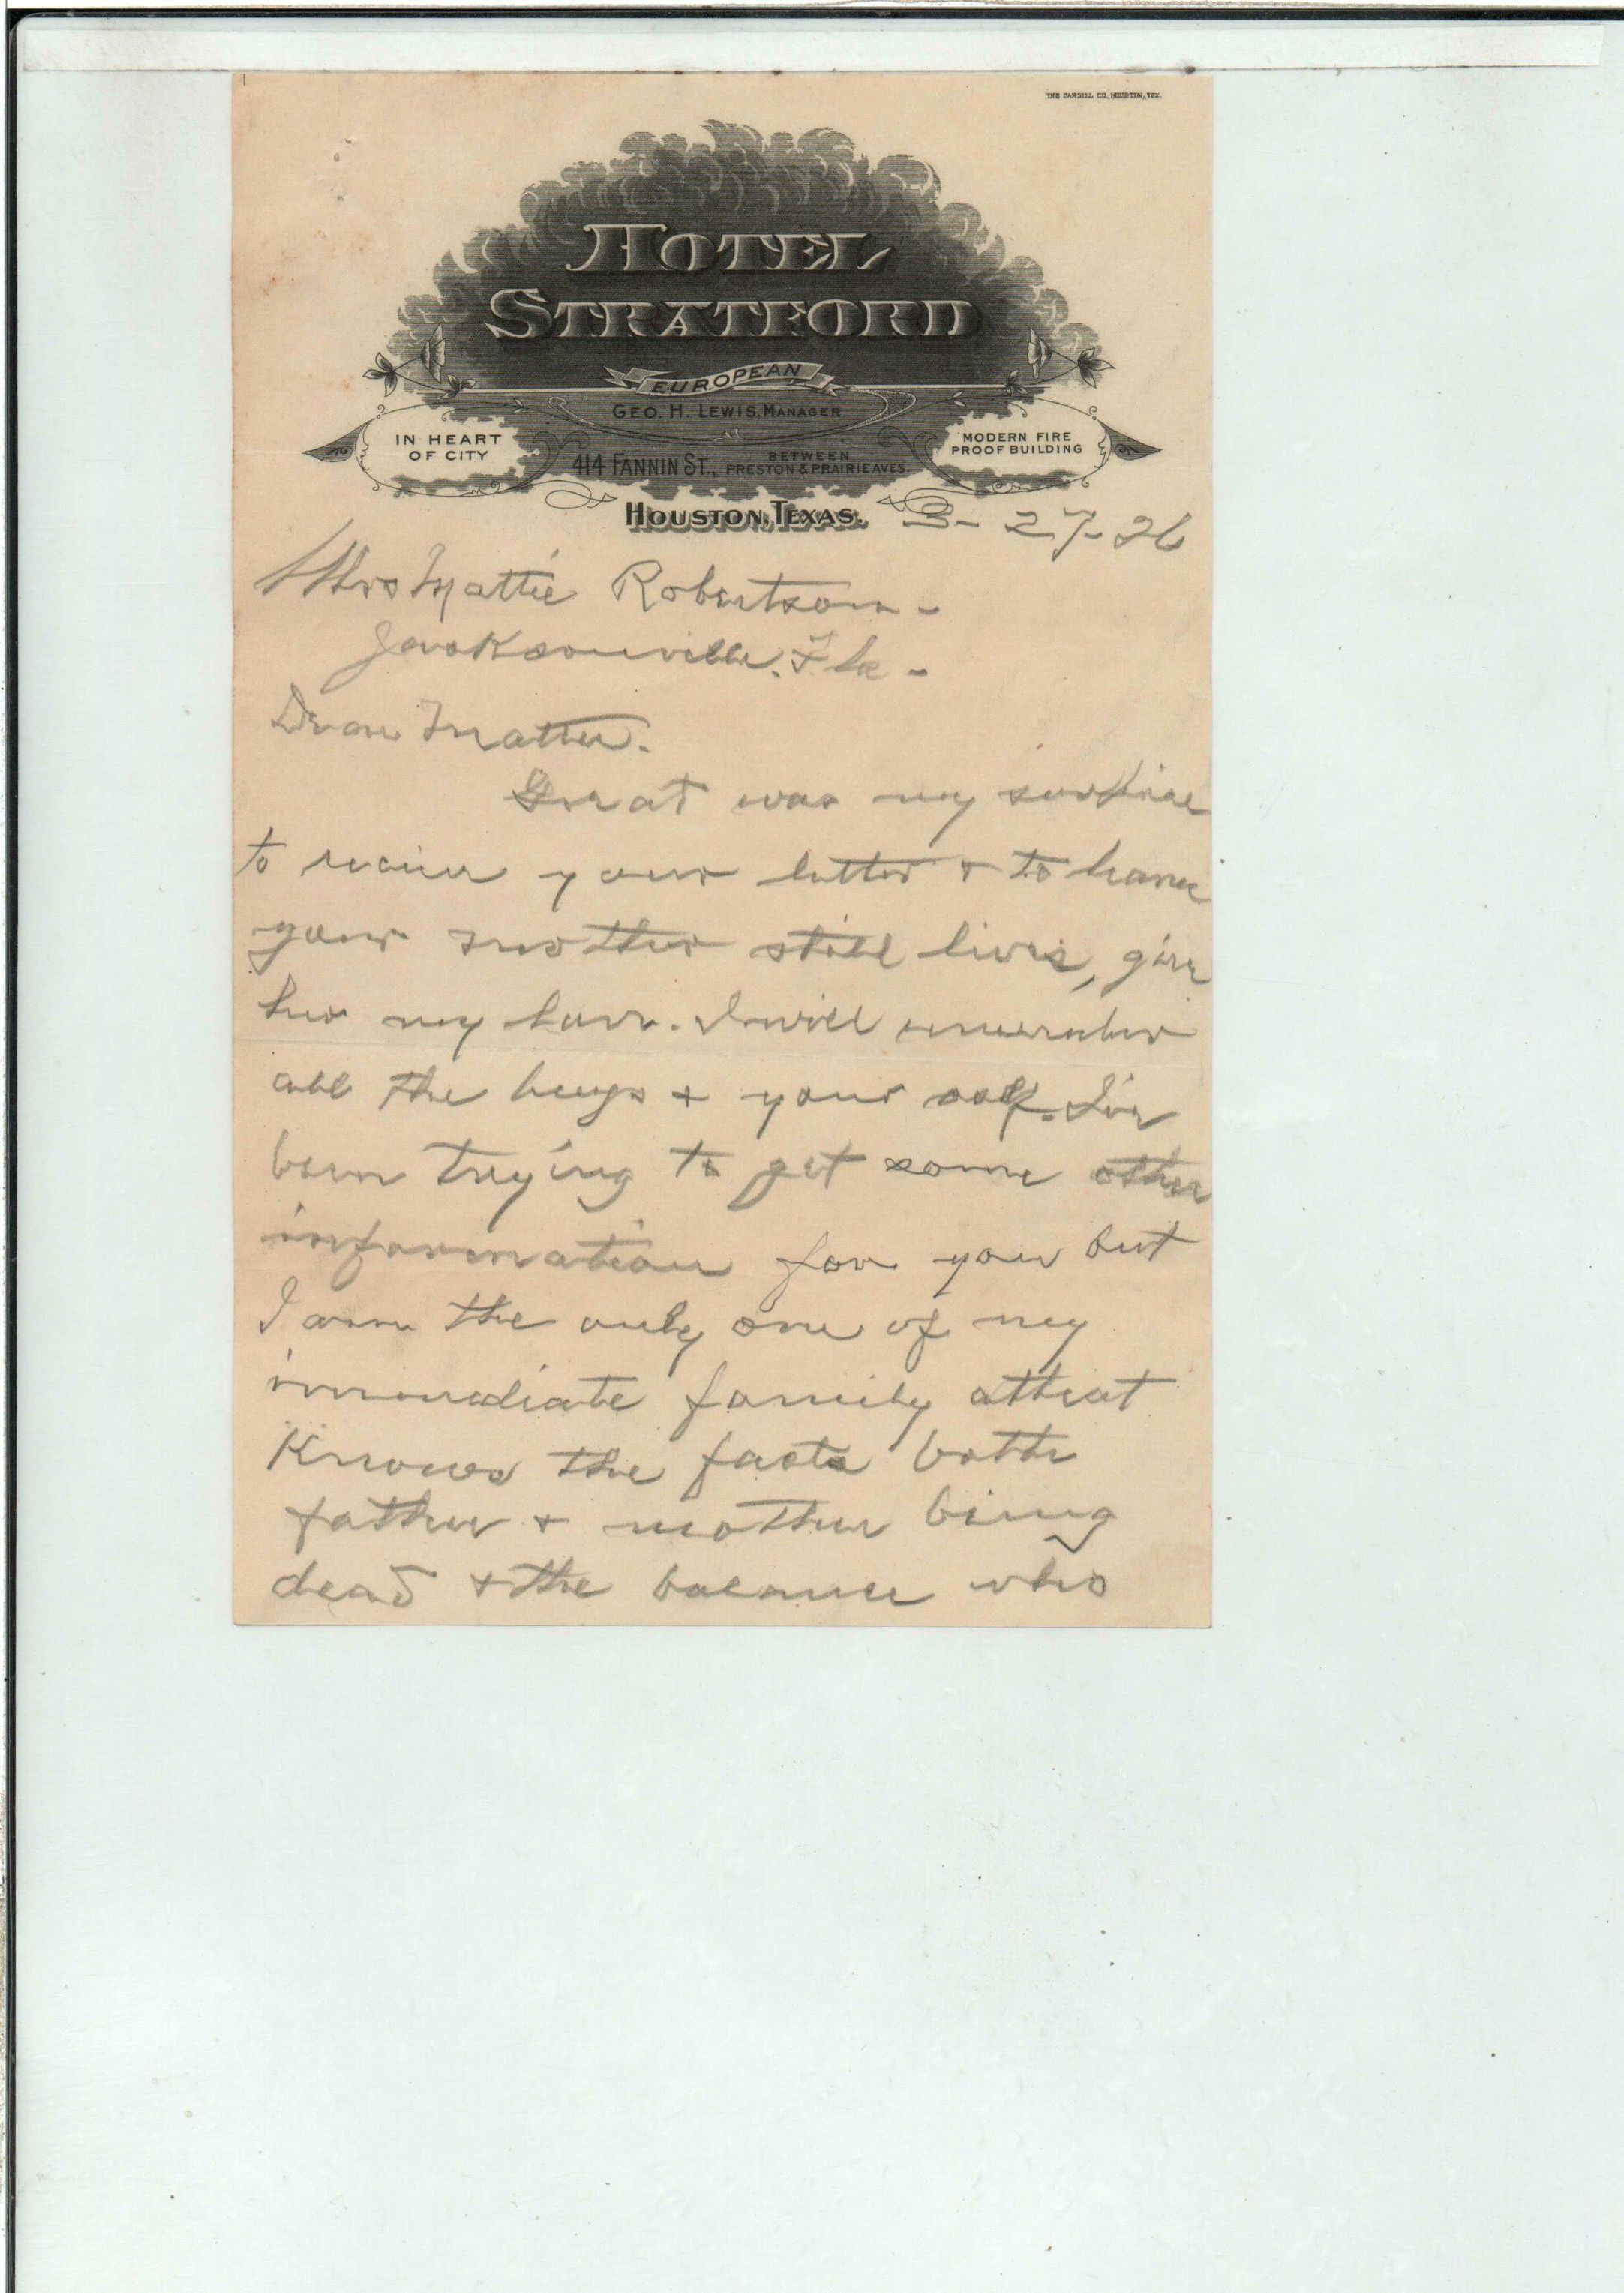 THE CARGILL CO. HOUSTON, TEX.
HOTEL
STRATFORD
EUROPEAN
GEO. H. LEWIS, MANAGER
IN HEART
OF CITY
MODERN FIRE
PROOF BUILDING
414 FANNIN ST., BETWEEN PRESTON & PRAIRIE AVES.
HOUSTON, TEXAS.
3-27-26
Mrs Mattie Robertson -
Jacksonville. Fla -
Dear Mattie.
Great was my surprise
to receive your letter + to
your mother still lives, give
her my love. I will remember
all the boys + your self. I've
been trying to get some other
information for you but
I am the only one of my
immediate family that
Knows the facts both
father + mother being
dead + the balance who